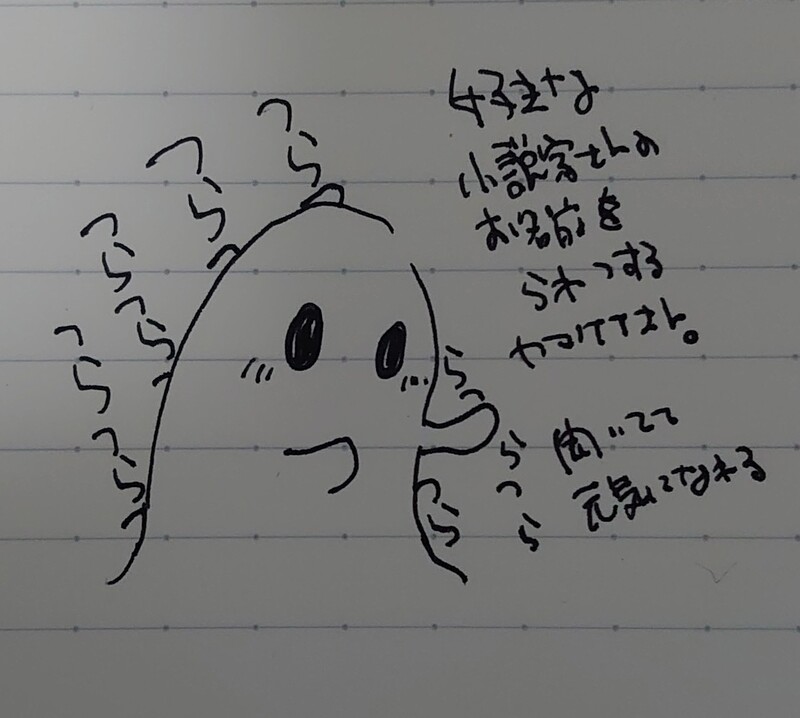 好きな
小説家さんの
お名前を
られつする
やつけてさん。
聞いてて
元気になれる
つら
つら
つら
つら
つら
つら
つら
つら
つら